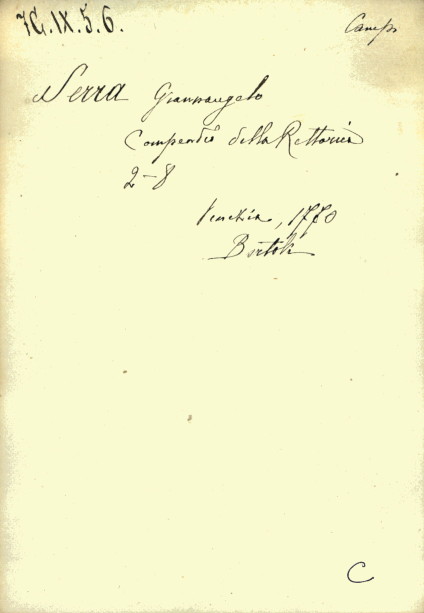 7C.IX.5.6.
Camp
Serra Giannangelo
Compendio della Rettorica
2-8
Venezia, 1770
Bortoli
C